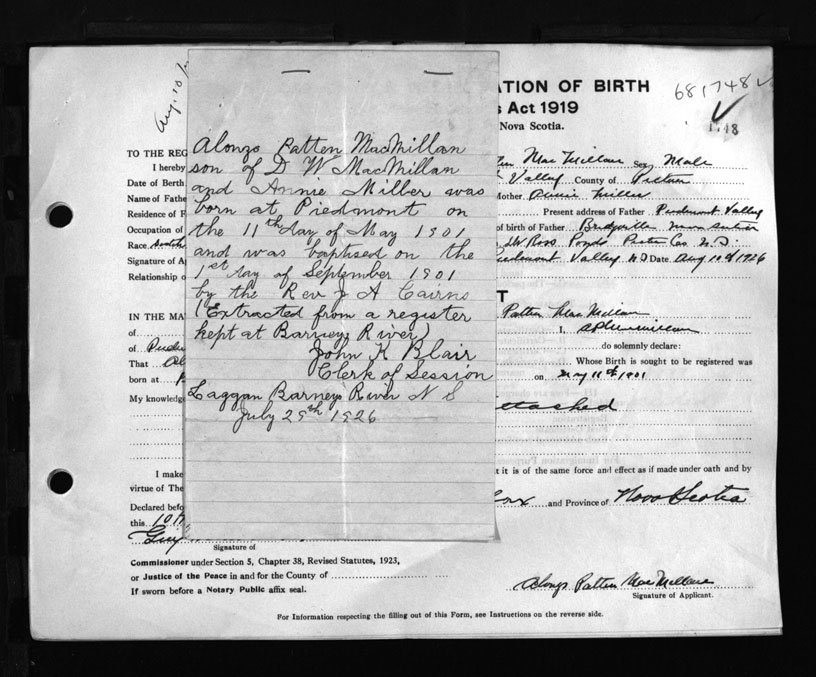 Aug. 10
ATION OF BIRTH
681748
s Act 1919
Nova Scotia.
1748
TO THE REG
I hereby
Mac Millan Sex Male
Date of Birth
Valley County of Pictou
Name of Father
Mother Annie Miller
Residence of F
Present address of Father Piedmont Valley
Occupation of
of birth of Father Bridgeville Nova Scotia
Race Scotch
Ross Ponds Pictou Co. N.S.
Signature of Ap
Piedmont Valley N.S Date Aug 10th 1926
Relationship o
Alonzo Patten MacMillan
son of D W MacMillan
and Annie Miller was
born at Piedmont on
the 11th day of May 1901
and was baptised on the
1st day of September 1901
by the Rev J A Cairns
(Extracted from a register
kept at Barneys River)
John K Blair
Clerk of Session
Laggan Barneys River N S
July 29th 1926
T
IN THE MA
Patten MacMillan
of
I,
of
do solemnly declare:
That Al
Whose Birth is sought to be registered was
born at
on May 11th 1901
My knowledg
attached
I make
t it is of the same force and effect as if made under oath and by
virtue of The
Declared befo
and Province of Nova Scotia
this 10th
Signature of
Commissioner under Section 5, Chapter 38, Revised Statutes, 1923,
or Justice of the Peace in and for the County of
If sworn before a Notary Public affix seal.
Alonzo Patten MacMillan
Signature of Applicant.
For Information respecting the filling out of this Form, see Instructions on the reverse side.